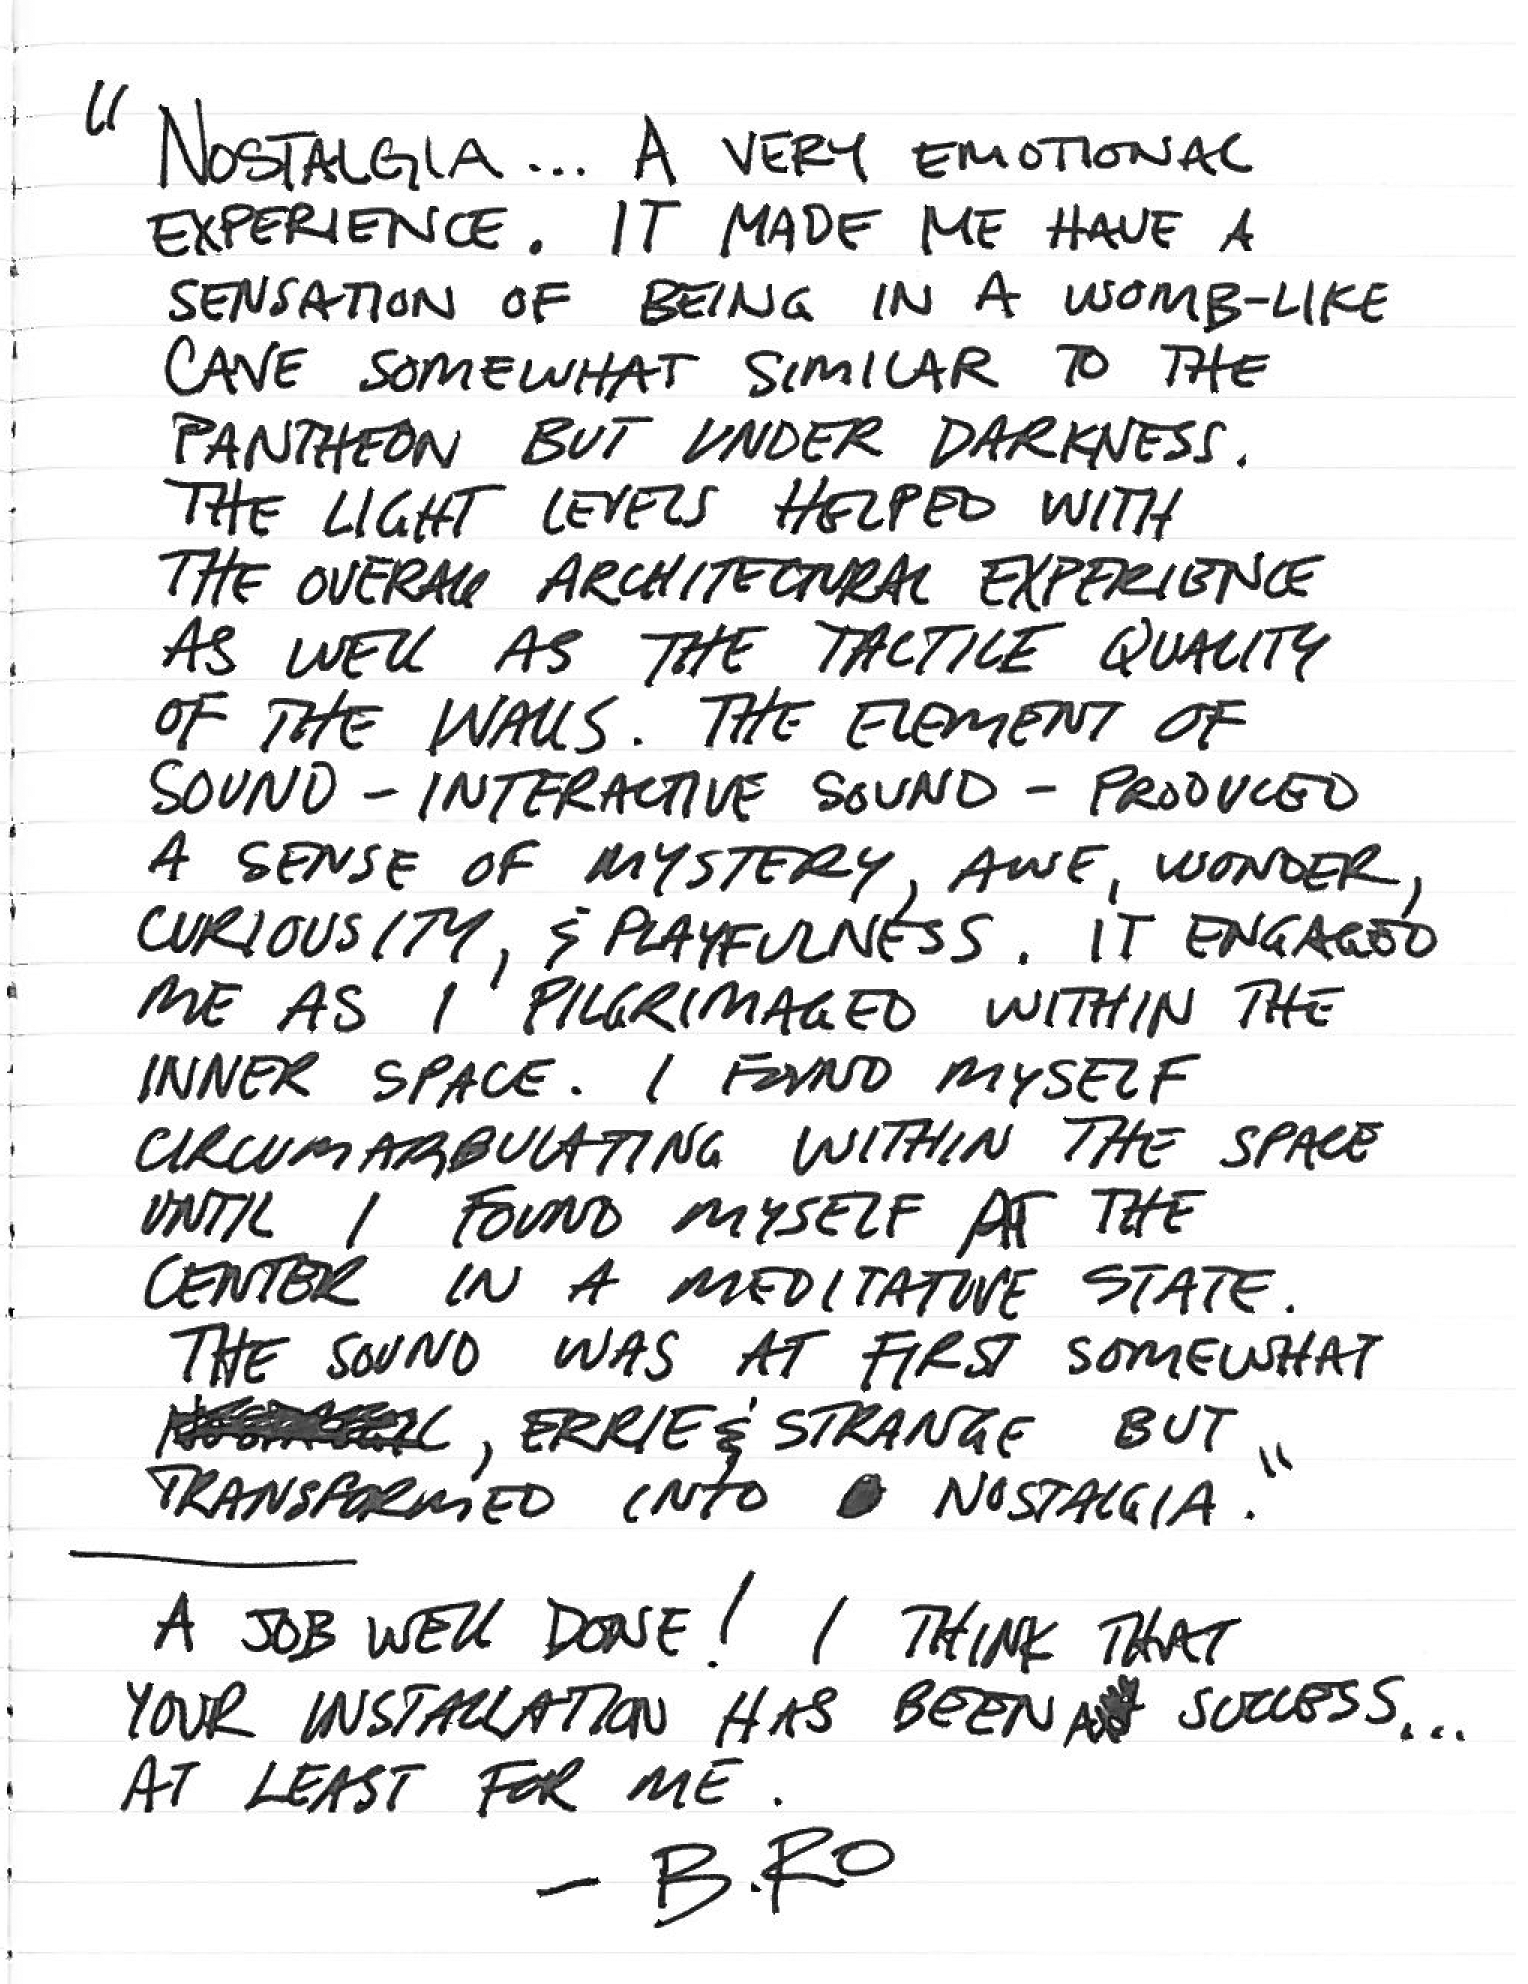 "NOSTALGIA... A VERY EMOTIONAL
EXPERIENCE. IT MADE ME HAVE A
SENSATION OF BEING IN A WOMB-LIKE
CAVE SOMEWHAT SIMILAR TO THE
PANTHEON BUT UNDER DARKNESS.
THE LIGHT LEVELS HELPED WITH
THE OVERALL ARCHITECTURAL EXPERIENCE
AS WELL AS THE TACTILE QUALITY
OF THE WALLS. THE ELEMENT OF
SOUND - INTERACTIVE SOUND - PRODUCED
A SENSE OF MYSTERY, AWE, WONDER,
CURIOUSITY, & PLAYFULNESS. IT ENGAGED
ME AS I PILGRIMAGED WITHIN THE
INNER SPACE. I FOUND MYSELF
CIRCUMAMBULATING WITHIN THE SPACE
UNTIL I FOUND MYSELF AT THE
CENTER IN A MEDITATIVE STATE.
THE SOUND WAS AT FIRST SOMEWHAT
, ERRIE & STRANGE BUT
TRANSFORMED INTO NOSTALGIA."
A JOB WELL DONE! I THINK THAT
YOUR INSTALLATION HAS BEEN A SUCCESS...
AT LEAST FOR ME.
- B.RO